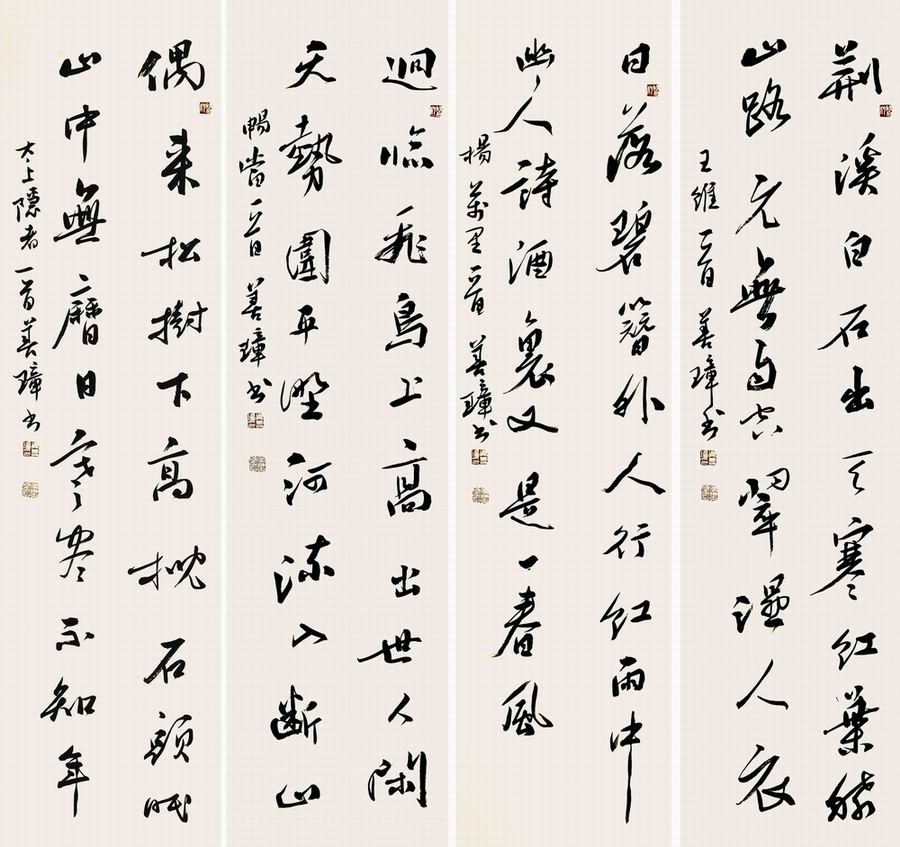 荊溪白石出天寒红葉稀
山路元無雨空翠湿人衣
王維一首 善璋书
日落碧簪外人行红雨中
幽人詩酒裏又是一春風
楊萬里一首 善璋书
迥臨飛鳥上高出世人閑
天勢圍平野河流入斷山
暢當一首 善璋书
偶来松樹下高枕石頭眠
山中無曆日寒盡不知年
太上隱者一首善璋书